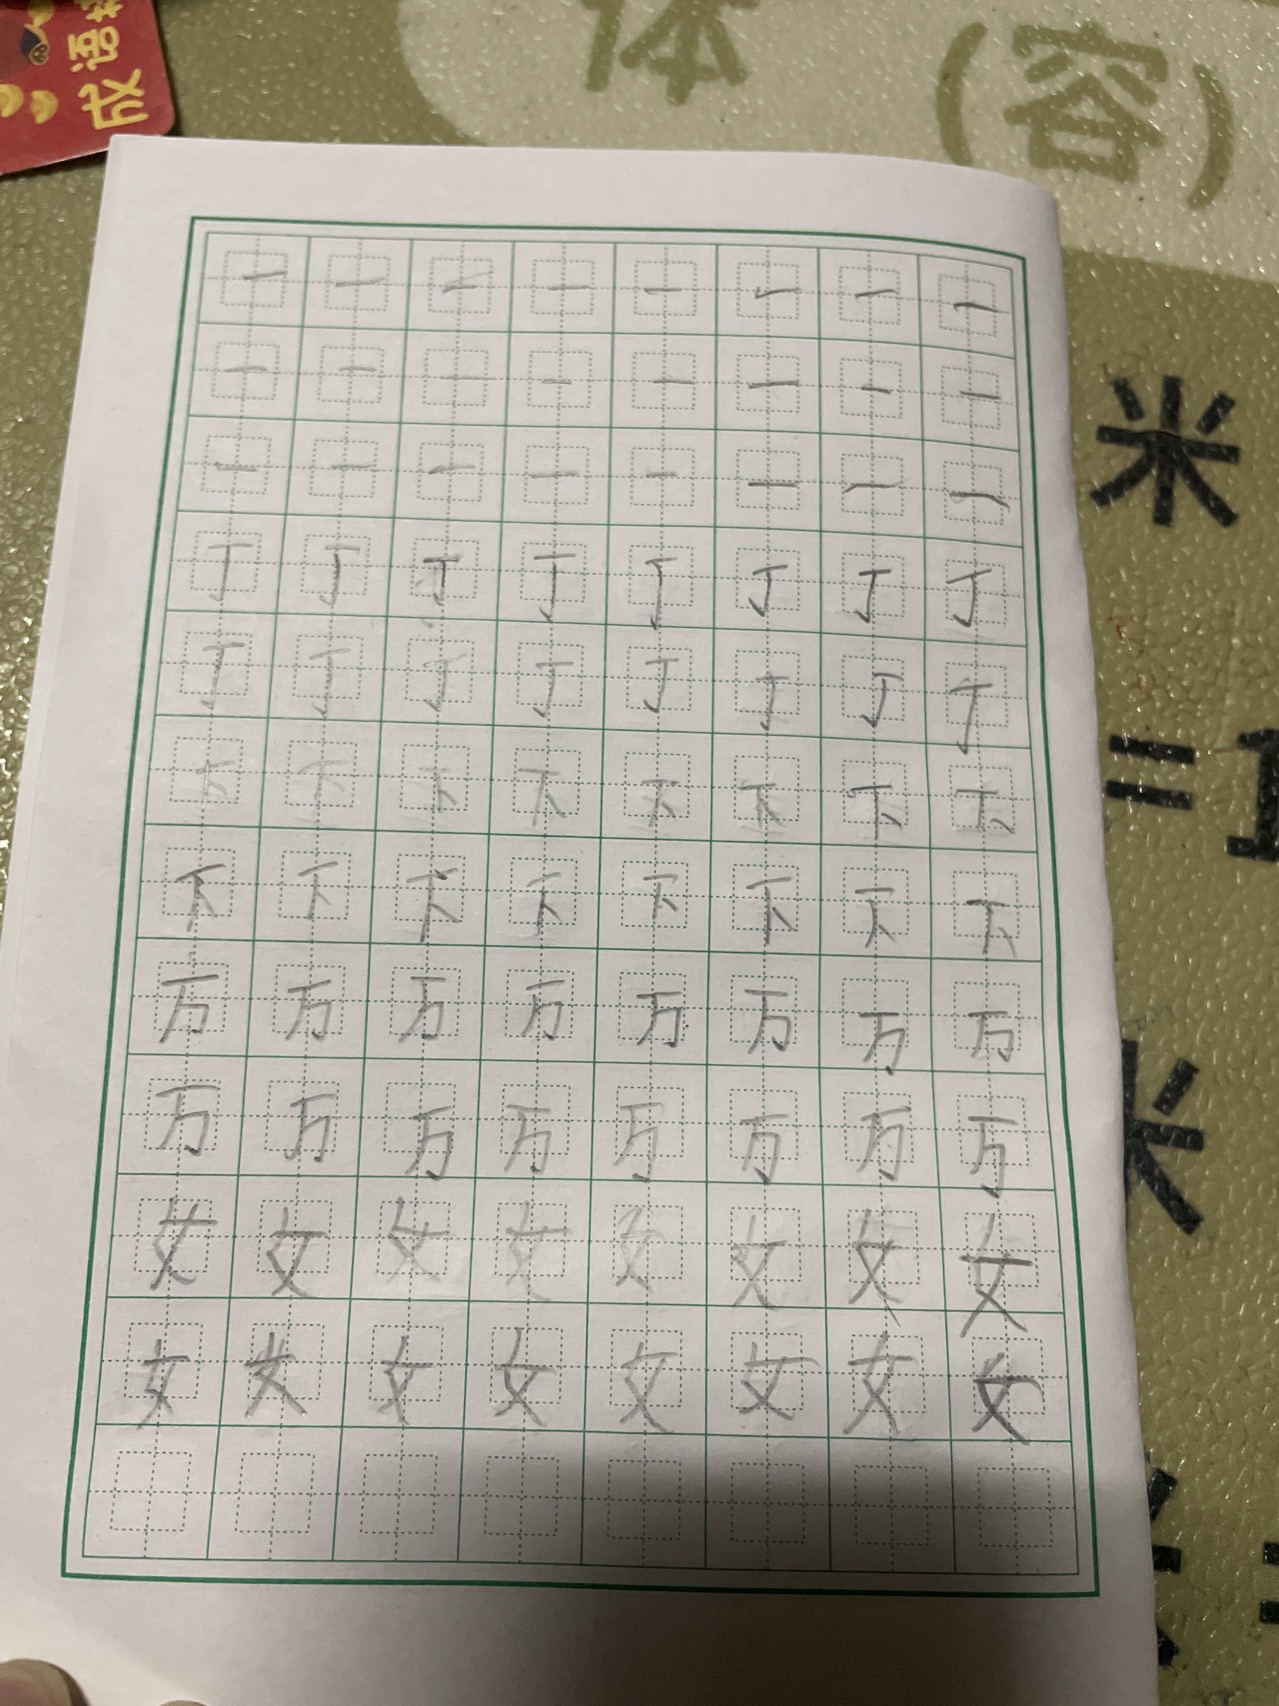 成语
体
(容)
一一一一一一一一
一一一一一一一一
一一一一一一一一
丁丁丁丁丁丁丁丁
丁丁丁丁丁丁丁丁
下下下下下下下下
下下下下下下下下
万万万万万万万万
万万万万万万万万
女女女女女女女女
女女女女女女女女
米
米